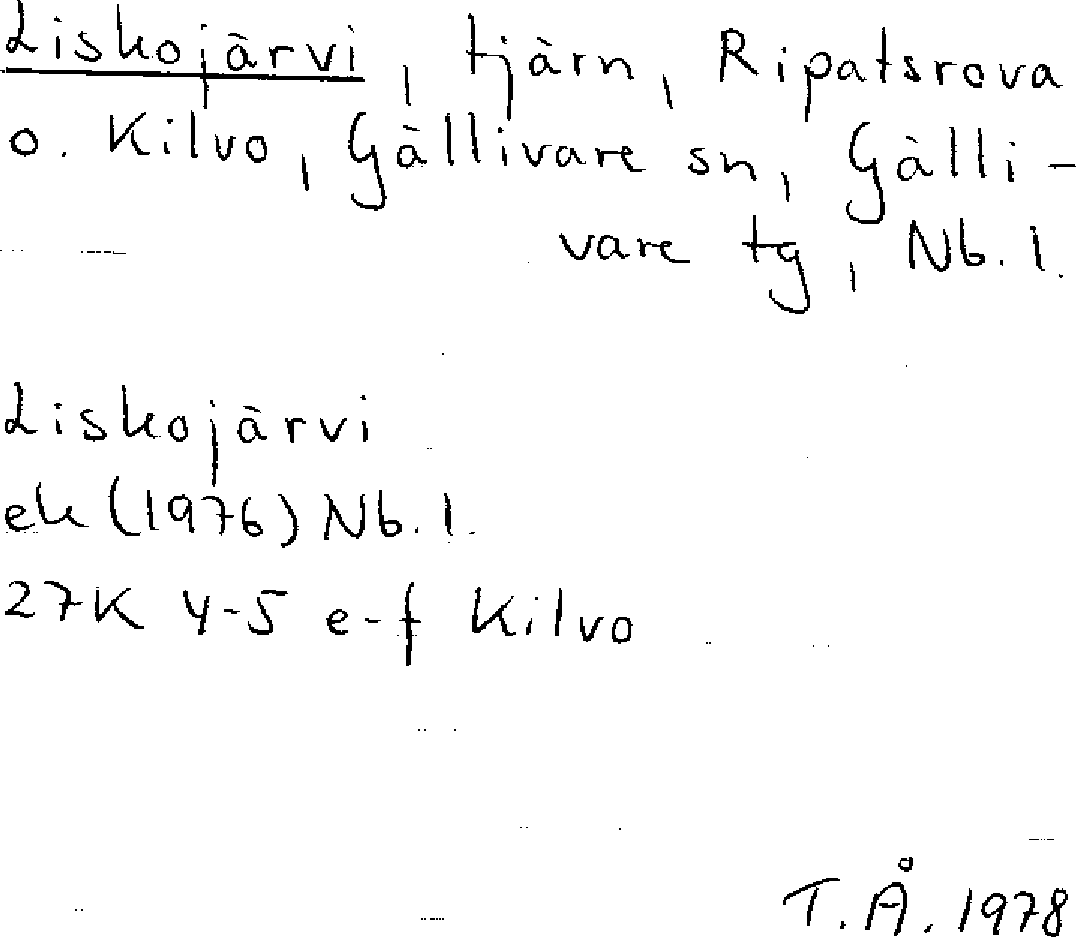 Liskojärvi, tjärn, Ripatsrova
o. Kilvo, Gällivare sn, Gälli-
vare tg, Nb. l.
Liskojärvi
ek (1976) Nb. l.
27K 4-5 e-f Kilvo
T.Å. 1978